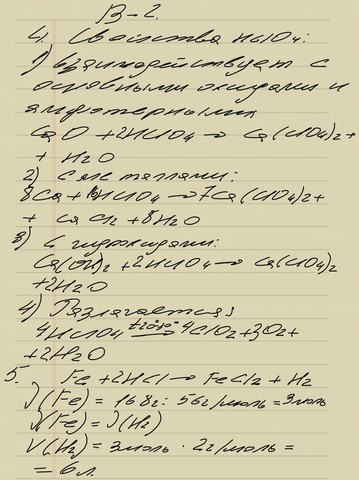 В-2.
4. Свойства HClO4:
1) взаимодействует с
основными оксидами и
амфотерными
CaO + 2HClO4 → Ca(ClO4)2 +
+ H2O
2) С металлами:
8Ca + HClO4 → 7Ca(ClO4)2 +
+ CaCl2 + 8H2O
3) С гидроксидами:
Ca(OH)2 + 2HClO4 → Ca(ClO4)2
+2H2O
4) Разлагается:
4HClO4 → 4ClO2 + 3O2 +
+2H2O
5. Fe + 2HCl → FeCl2 + H2
ν(Fe) = 168г : 56г/моль = 3моль
ν(Fe) = ν(H2)
V(H2) = 3моль · 2г/моль =
= 6л.